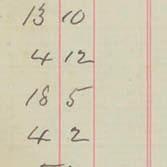 13 10
4 12
18 5
4 2